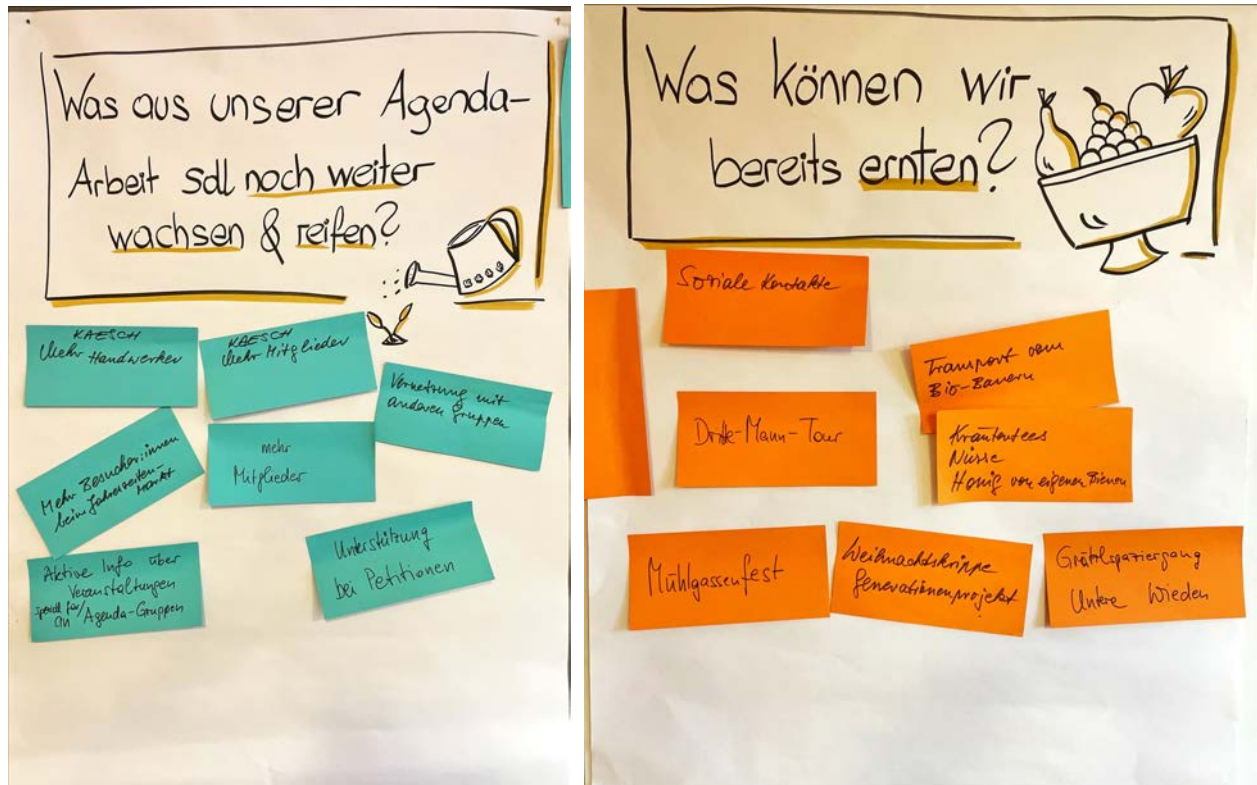 Was aus unserer Agenda-
Arbeit soll noch weiter
wachsen & reifen?
KAESCH
Mehr Handwerker
KAESCH
Mehr Mitglieder
Vernetzung mit
anderen Gruppen
Mehr Besucher:innen
beim Jahreszeiten-
Markt
mehr
Mitglieder
Aktive Info über
Veranstaltungen
speziell für/
an Agenda-Gruppen
Unterstützung
bei Petitionen
Was können wir
bereits ernten?
Soziale Kontakte
Transport vom
Bio-Bauern
Dritte-Mann-Tour
Kräutertees
Nüsse
Honig von eigenen Bienen
Mühlgassenfest
Weihnachtskrippe
Generationenprojekt
Grätzlspaziergang
Untere Wieden